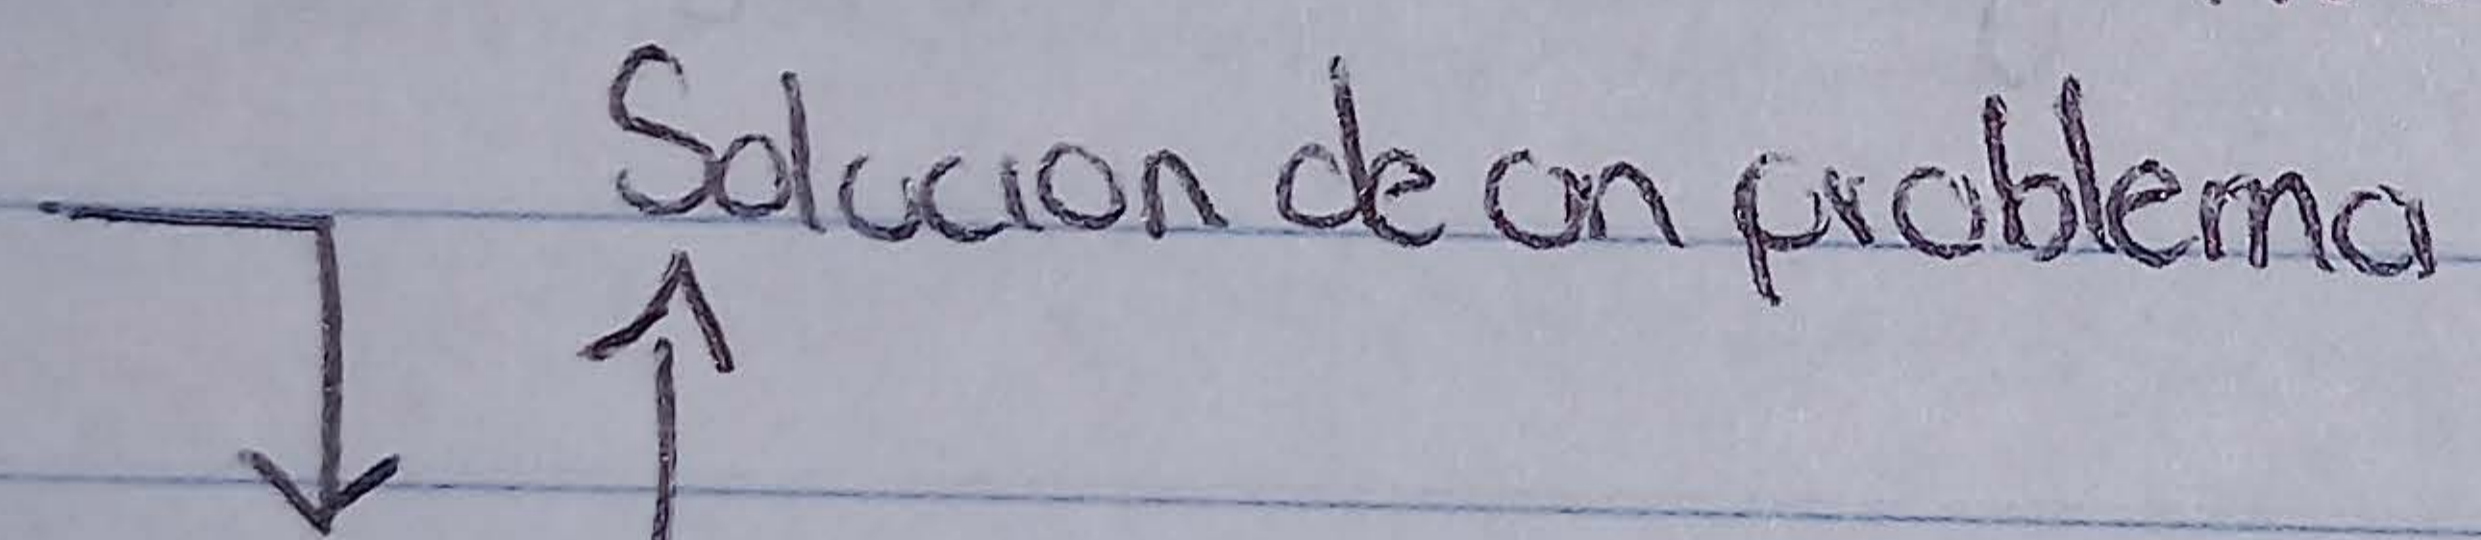 Solucion de un problema